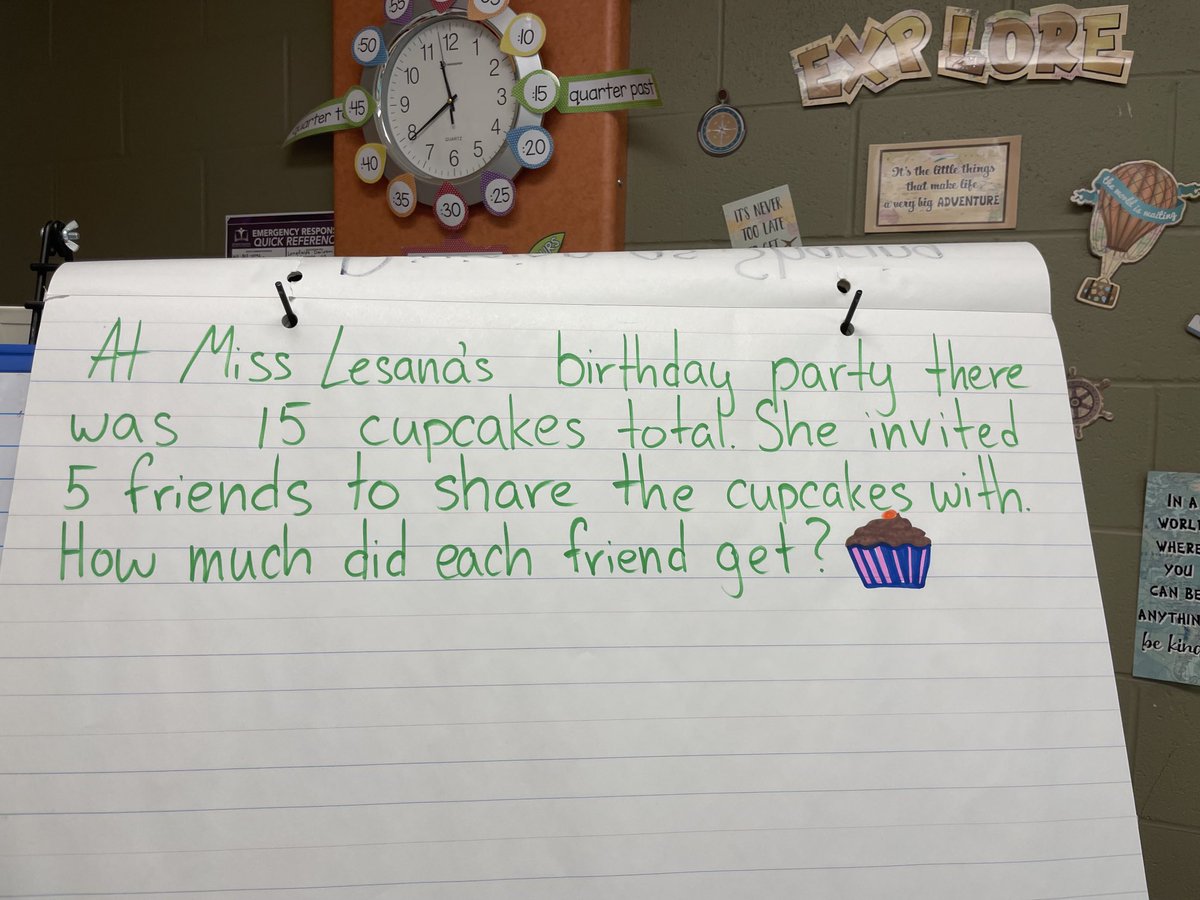 55
:50
:10
:45
:15
quarter past
:40
:20
:35
:30
:25
11 12 1
10 2
9 3
8 4
7 6 5
QUARTZ
quarter
EXPLORE
It's the little things
that make life
a very big ADVENTURE
IT'S NEVER
TOO LATE
the world is waiting
EMERGENCY
QUICK
At Miss Lesana's birthday party there
was 15 cupcakes total. She invited
5 friends to share the cupcakes with.
How much did each friend get?
IN A
WHERE
YOU
CAN BE
be